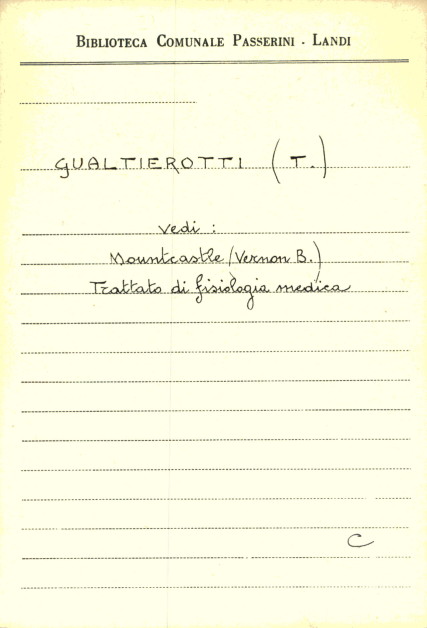 BIBLIOTECA COMUNALE PASSERINI - LANDI
GUALTIEROTTI (T.)
vedi :
Mountcastle (Vernon B.)
Trattato di fisiologia medica
C